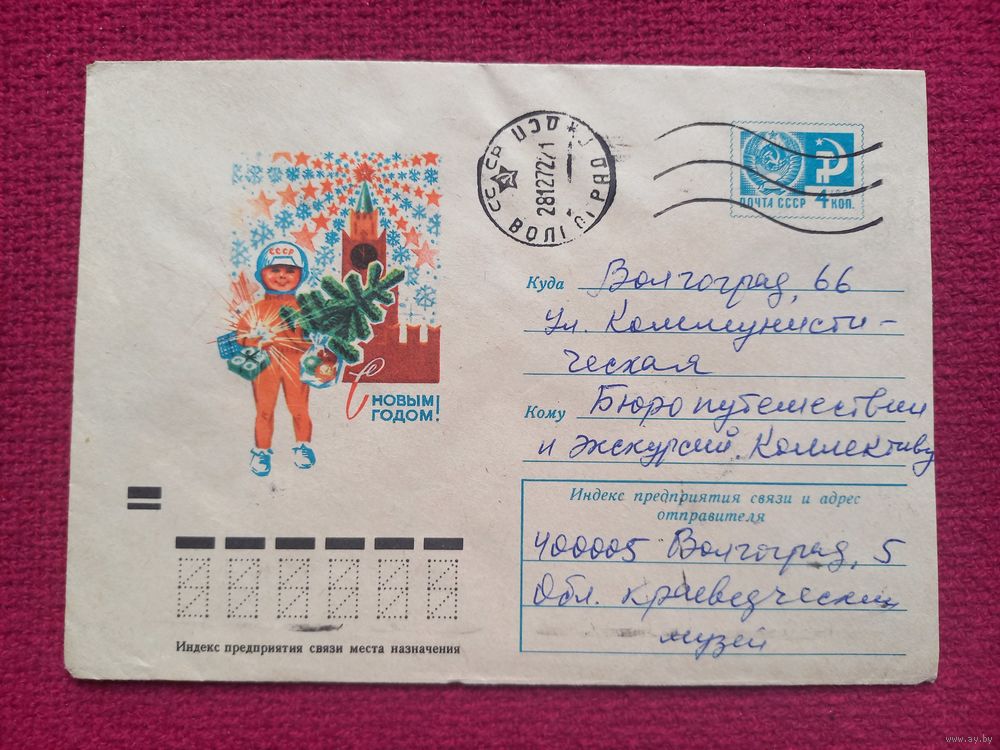 СССР
С
НОВЫМ
ГОДОМ!
СССР
ВОЛГОГРАД
28127221
ПОЧТА СССР 4 КОП.
Куда Волгоград, 66
ул. Коммунисти-
ческая
Кому Бюро путешествий
и экскурсий. Коллективу
Индекс предприятия связи и адрес
отправителя
400005 Волгоград, 5
Обл. краеведческий
музей
Индекс предприятия связи места назначения
www.ay.by